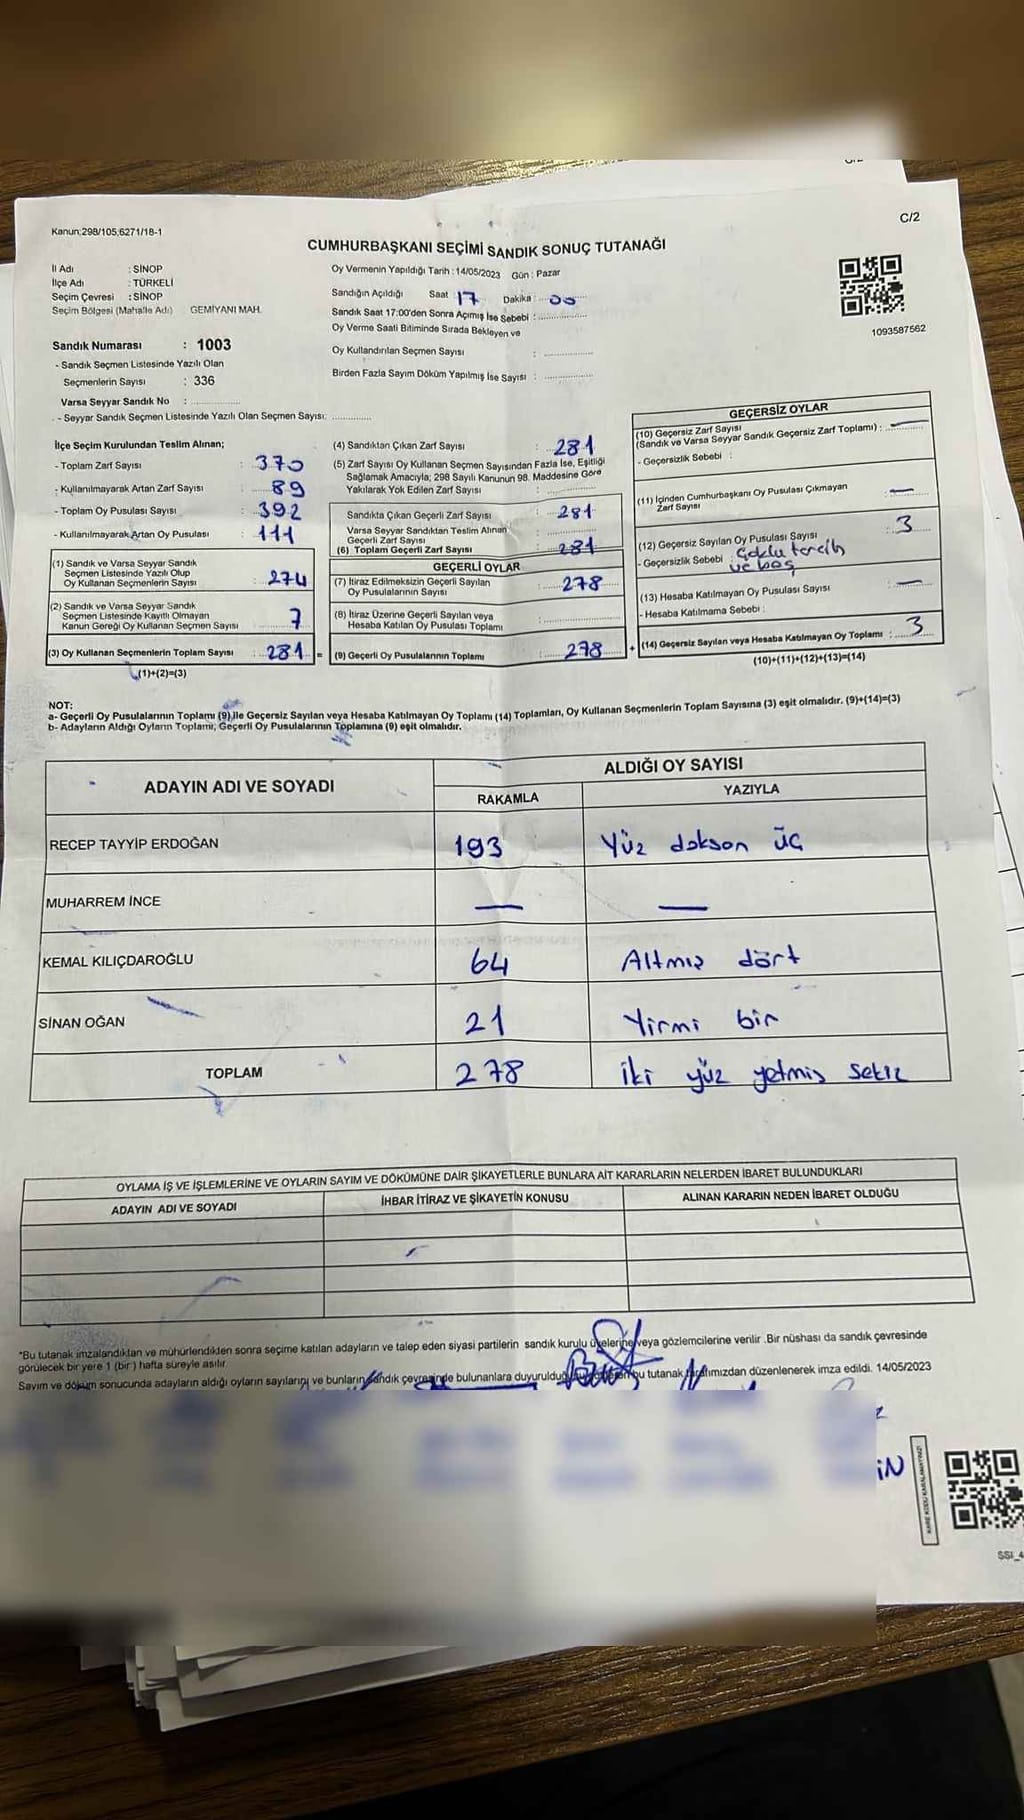 C/2
Kanun:298/105,6271/18-1
CUMHURBAŞKANI SEÇİMİ SANDIK SONUÇ TUTANAĞI
İl Adı : SİNOP
İlçe Adı : TÜRKELİ
Seçim Çevresi : SİNOP
Seçim Bölgesi (Mahalle Adı) GEMİYANI MAH.
Sandık Numarası : 1003
- Sandık Seçmen Listesinde Yazılı Olan
Seçmenlerin Sayısı : 336
Varsa Seyyar Sandık No :
- Seyyar Sandık Seçmen Listesinde Yazılı Olan Seçmen Sayısı:
Oy Vermenin Yapıldığı Tarih : 14/05/2023 Gün : Pazar
Sandığın Açıldığı Saat 17 Dakika 00
Sandık Saat 17:00'den Sonra Açımış İse Sebebi :
Oy Verme Saati Bitiminde Sırada Bekleyen ve
Oy Kullandırılan Seçmen Sayısı :
Birden Fazla Sayım Döküm Yapılmış İse Sayısı :
1093587562
İlçe Seçim Kurulundan Teslim Alınan;
- Toplam Zarf Sayısı : 370
- Kullanılmayarak Artan Zarf Sayısı : 89
- Toplam Oy Pusulası Sayısı : 392
- Kullanılmayarak Artan Oy Pusulası : 111
(1) Sandık ve Varsa Seyyar Sandık
Seçmen Listesinde Yazılı Olup
Oy Kullanan Seçmenlerin Sayısı : 274
(2) Sandık ve Varsa Seyyar Sandık
Seçmen Listesinde Kayıtlı Olmayan
Kanun Gereği Oy Kullanan Seçmen Sayısı 7
(3) Oy Kullanan Seçmenlerin Toplam Sayısı : 281 =
(1)+(2)=(3)
(4) Sandıktan Çıkan Zarf Sayısı : 281
(5) Zarf Sayısı Oy Kullanan Seçmen Sayısından Fazla İse, Eşitliği
Sağlamak Amacıyla; 298 Sayılı Kanunun 98. Maddesine Göre
Yakılarak Yok Edilen Zarf Sayısı :
Sandıkta Çıkan Geçerli Zarf Sayısı : 281
Varsa Seyyar Sandıktan Teslim Alınan
Geçerli Zarf Sayısı :
(6) Toplam Geçerli Zarf Sayısı : 281
GEÇERLİ OYLAR
(7) İtiraz Edilmeksizin Geçerli Sayılan
Oy Pusulalarının Sayısı : 278
(8) İtiraz Üzerine Geçerli Sayılan veya
Hesaba Katılan Oy Pusulası Toplamı :
(9) Geçerli Oy Pusulalarının Toplamı : 278 +
GEÇERSİZ OYLAR
(10) Geçersiz Zarf Sayısı
(Sandık ve Varsa Seyyar Sandık Geçersiz Zarf Toplamı) : —
- Geçersizlik Sebebi :
(11) İçinden Cumhurbaşkanı Oy Pusulası Çıkmayan
Zarf Sayısı : —
(12) Geçersiz Sayılan Oy Pusulası Sayısı : 3
- Geçersizlik Sebebi : Çoklu tercih
ve boş
(13) Hesaba Katılmayan Oy Pusulası Sayısı : —
- Hesaba Katılmama Sebebi :
(14) Geçersiz Sayılan veya Hesaba Katılmayan Oy Toplamı : 3
(10)+(11)+(12)+(13)=(14)
NOT:
a- Geçerli Oy Pusulalarının Toplamı (9) ile Geçersiz Sayılan veya Hesaba Katılmayan Oy Toplamı (14) Toplamları, Oy Kullanan Seçmenlerin Toplam Sayısına (3) eşit olmalıdır. (9)+(14)=(3)
b- Adayların Aldığı Oyların Toplamı; Geçerli Oy Pusulalarının Toplamına (9) eşit olmalıdır.
ADAYIN ADI VE SOYADI ALDIĞI OY SAYISI
RAKAMLA YAZIYLA
RECEP TAYYİP ERDOĞAN 193 Yüz dokson üç
MUHARREM İNCE — —
KEMAL KILIÇDAROĞLU 64 Altmış dört
SİNAN OĞAN 21 Yirmi bir
TOPLAM 278 iki yüz yetmiş sekiz
OYLAMA İŞ VE İŞLEMLERİNE VE OYLARIN SAYIM VE DÖKÜMÜNE DAİR ŞİKAYETLERLE BUNLARA AİT KARARLARIN NELERDEN İBARET BULUNDUKLARI
ADAYIN ADI VE SOYADI İHBAR İTİRAZ VE ŞİKAYETİN KONUSU ALINAN KARARIN NEDEN İBARET OLDUĞU
*Bu tutanak imzalandıktan ve mühürlendikten sonra seçime katılan adayların ve talep eden siyasi partilerin sandık kurulu üyelerine veya gözlemcilerine verilir .Bir nüshası da sandık çevresinde
görülecek bir yere 1 (bir ) hafta süreyle asılır
Sayım ve döküm sonucunda adayların aldığı oyların sayılarını ve bunların sandık çevresinde bulunanlara duyurulduğu bu tutanak tarafımızdan düzenlenerek imza edildi. 14/05/2023
İN
KARE KODU KARALAMAYINIZ!
SSI_4